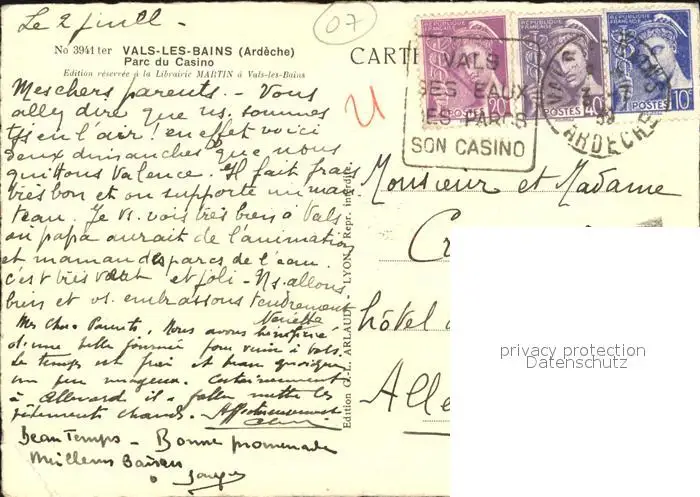 Le 2 juill
07
No 3941 ter VALS-LES-BAINS (Ardèche)
Parc du Casino
Edition réservée à la Librairie MARTIN à Vals-les-Bains
CARTE
RÉPUBLIQUE FRANÇAISE
POSTES
20c
RÉPUBLIQUE FRANÇAISE
POSTES
40c
POSTES
10c
VALS
SES EAUX
SES PARCS
SON CASINO
ARDECHE
Mes chers parents - Vous
allez dire que ns. sommes
ts en l'air ! en effet voici
deux dimanches que nous
quittons Valence. Il fait frais
très bon et on supporte un man
teau. Je vs. vois très bien à Vals
où papa aurait de l'animation
et maman des parcs de l'eau.
c'est très et joli - Ns. allons
bien et vs. embrassons tendrement
Mes Chers Parents, Nous avons bénéficié
d'une belle journée pour venir à Vals.
Le temps est frais et beau quoique
un peu nuageux. Certainement
à Allevard il falloir mettre les
vêtements chauds. Affectueusement
Beau Temps - Bonne promenade
Milliers Baisers
Edition G.-L. ARLAUD - LYON - Repr. interdite
Monsieur et Madame
hôtel
Alle
privacy protection
Datenschutz